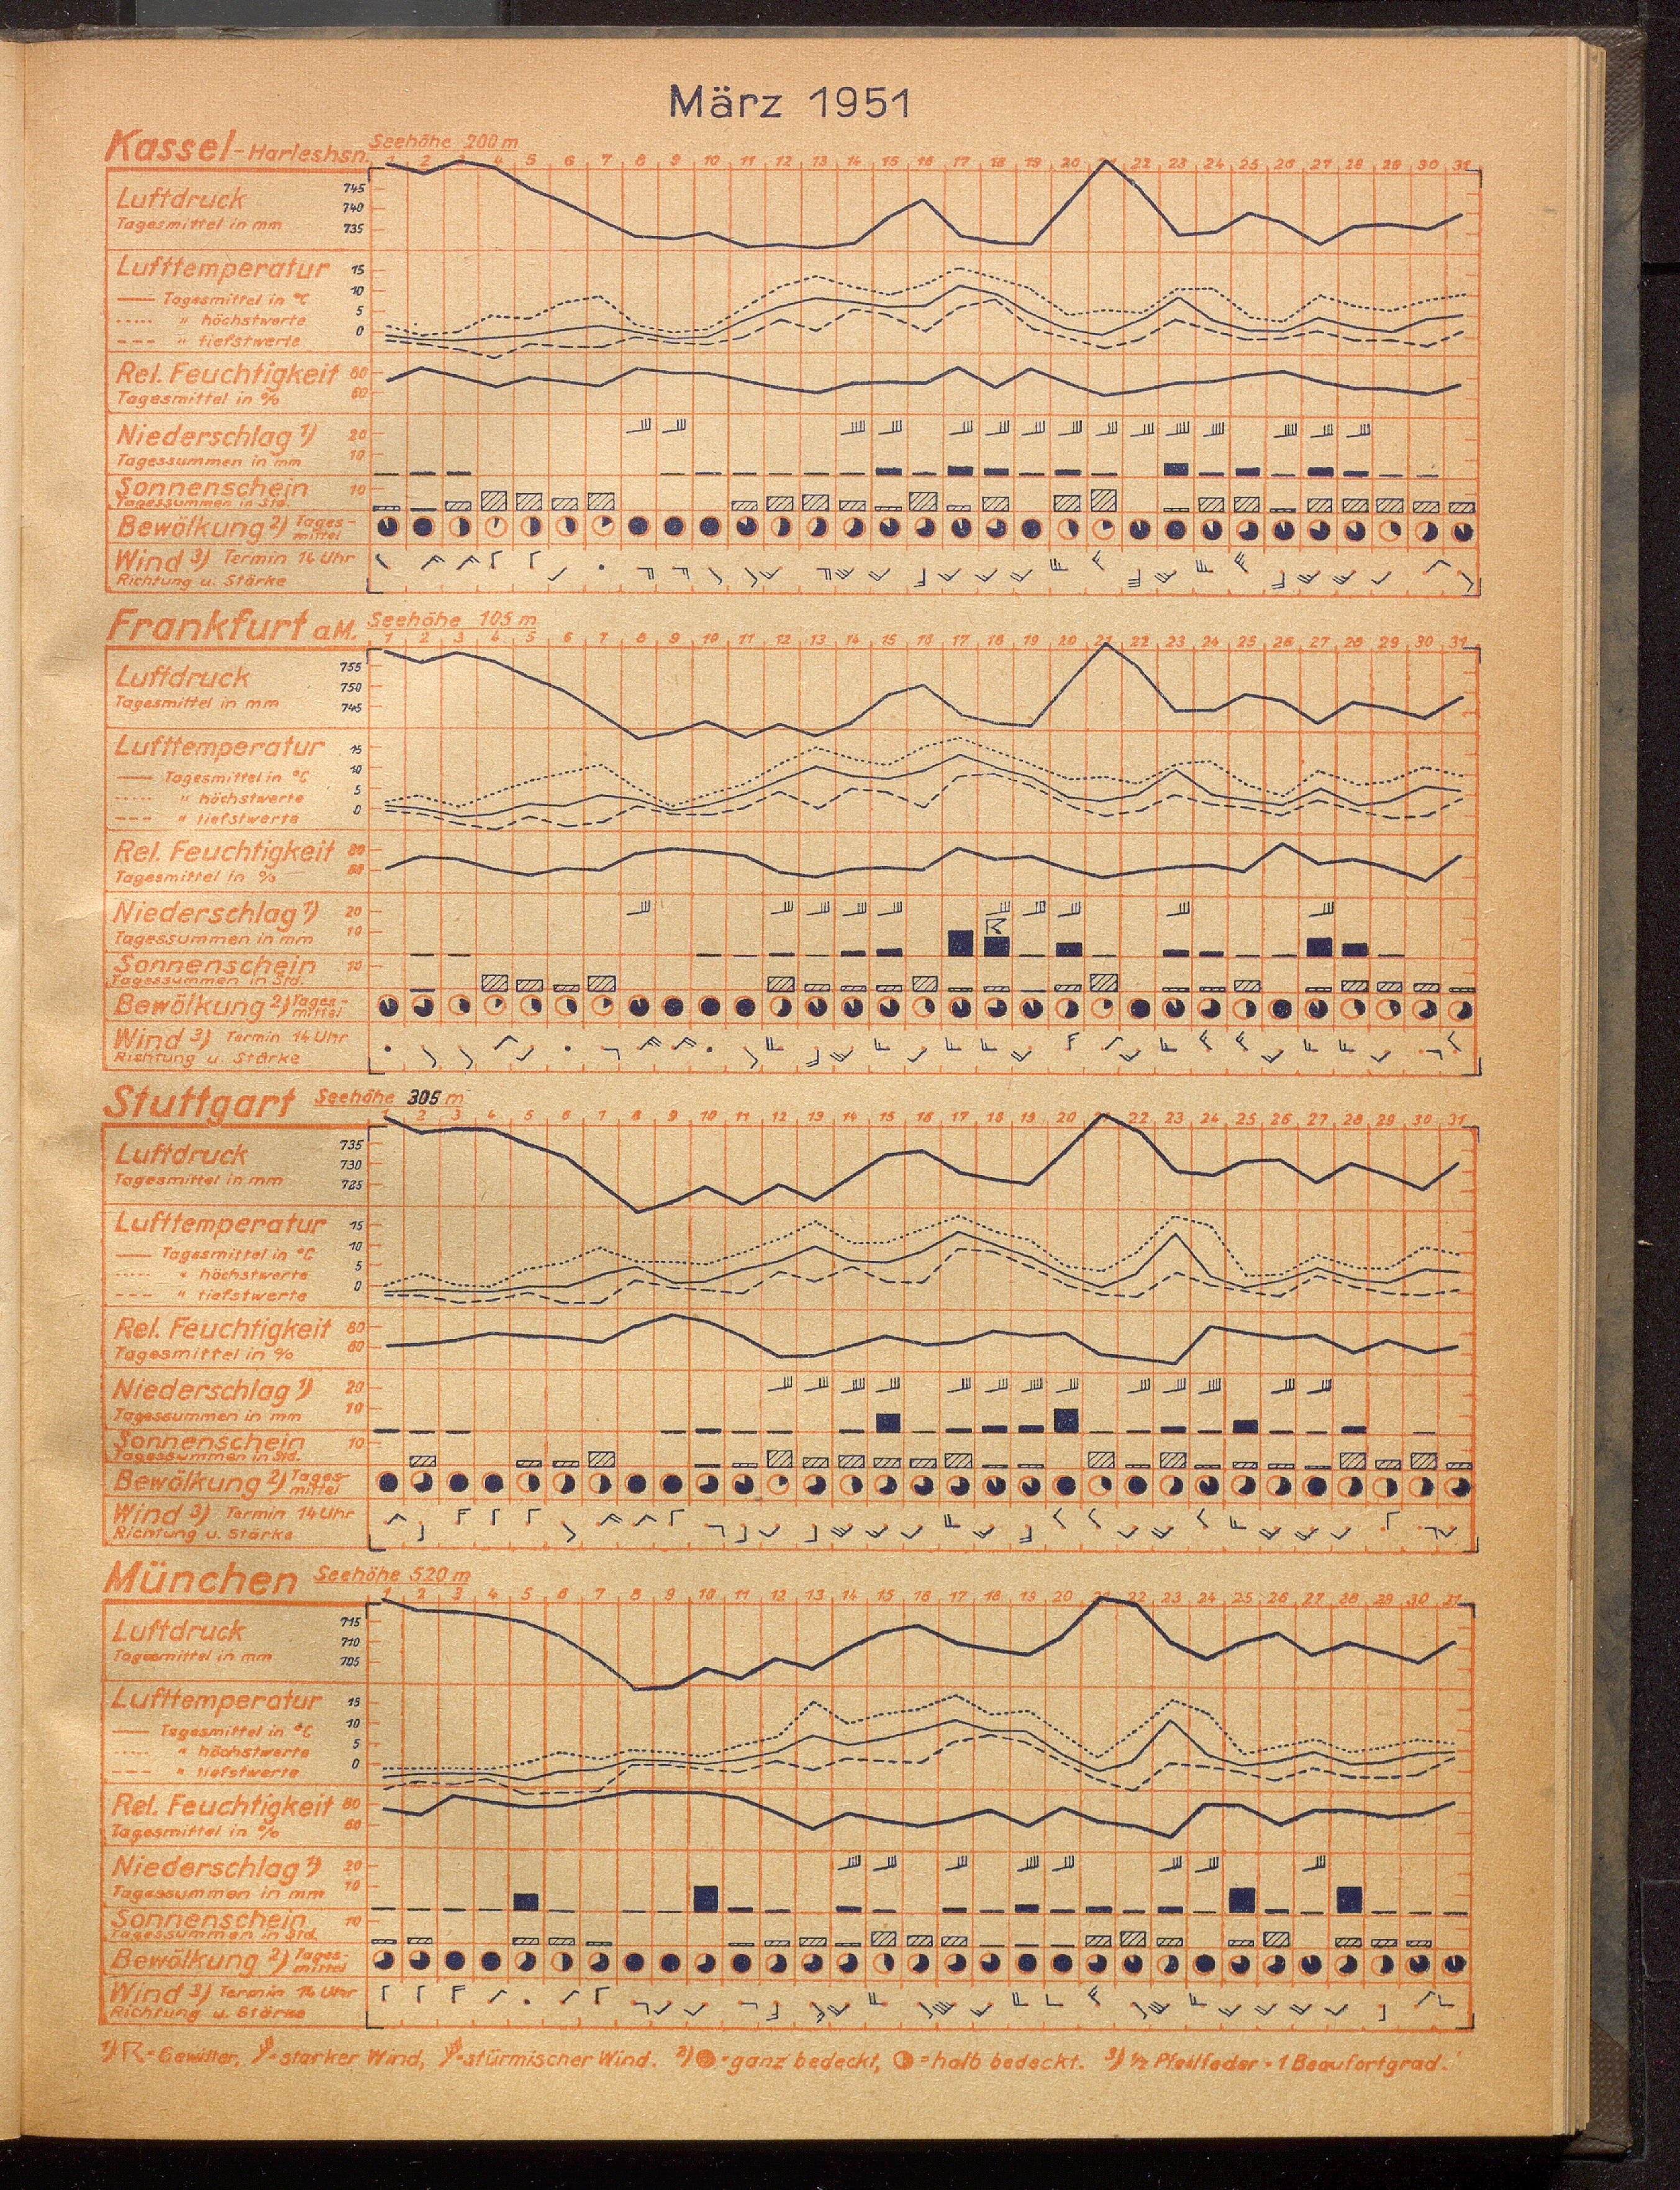 März 1951
Kassel-Harleshsn. Seehöhe 200 m
1 2 3 4 5 6 7 8 9 10 11 12 13 14 15 16 17 18 19 20 21 22 23 24 25 26 27 28 29 30 31
Luftdruck 745
Tagesmittel in mm 740
735
Lufttemperatur 15
Tagesmittel in °C 10
" höchstwerte 5
" tiefstwerte 0
Rel. Feuchtigkeit 80
Tagesmittel in % 60
Niederschlag 1) 20
Tagessummen in mm 10
Sonnenschein 10
Tagessummen in Std.
Bewölkung 2) Tages-
mittel
Wind 3) Termin 14 Uhr
Richtung u. Stärke
Frankfurt a.M. Seehöhe 105 m
1 2 3 4 5 6 7 8 9 10 11 12 13 14 15 16 17 18 19 20 21 22 23 24 25 26 27 28 29 30 31
Luftdruck 755
750
Tagesmittel in mm 745
Lufttemperatur 15
Tagesmittel in °C 10
" höchstwerte 5
" tiefstwerte 0
Rel. Feuchtigkeit 80
Tagesmittel in % 60
Niederschlag 1) 20
Tagessummen in mm 10
Sonnenschein 10
Tagessummen in Std.
Bewölkung 2) Tages-
mittel
Wind 3) Termin 14 Uhr
Richtung u. Stärke
Stuttgart Seehöhe 305 m
1 2 3 4 5 6 7 8 9 10 11 12 13 14 15 16 17 18 19 20 21 22 23 24 25 26 27 28 29 30 31
Luftdruck 735
730
Tagesmittel in mm 725
Lufttemperatur 15
Tagesmittel in °C 10
" höchstwerte 5
" tiefstwerte 0
Rel. Feuchtigkeit 80
Tagesmittel in % 60
Niederschlag 1) 20
Tagessummen in mm 10
Sonnenschein 10
Tagessummen in Std.
Bewölkung 2) Tages-
mittel
Wind 3) Termin 14 Uhr
Richtung u. Stärke
München Seehöhe 520 m
1 2 3 4 5 6 7 8 9 10 11 12 13 14 15 16 17 18 19 20 21 22 23 24 25 26 27 28 29 30 31
Luftdruck 715
710
Tagesmittel in mm 705
Lufttemperatur 15
Tagesmittel in °C 10
" höchstwerte 5
" tiefstwerte 0
Rel. Feuchtigkeit 80
Tagesmittel in % 60
Niederschlag 1) 20
Tagessummen in mm 10
Sonnenschein 10
Tagessummen in Std.
Bewölkung 2) Tages-
mittel
Wind 3) Termin 14 Uhr
Richtung u. Stärke
1) = Gewitter, = starker Wind, = stürmischer Wind. 2) = ganz bedeckt, = halb bedeckt. 3) ½ Pfeilfeder = 1 Beaufortgrad.